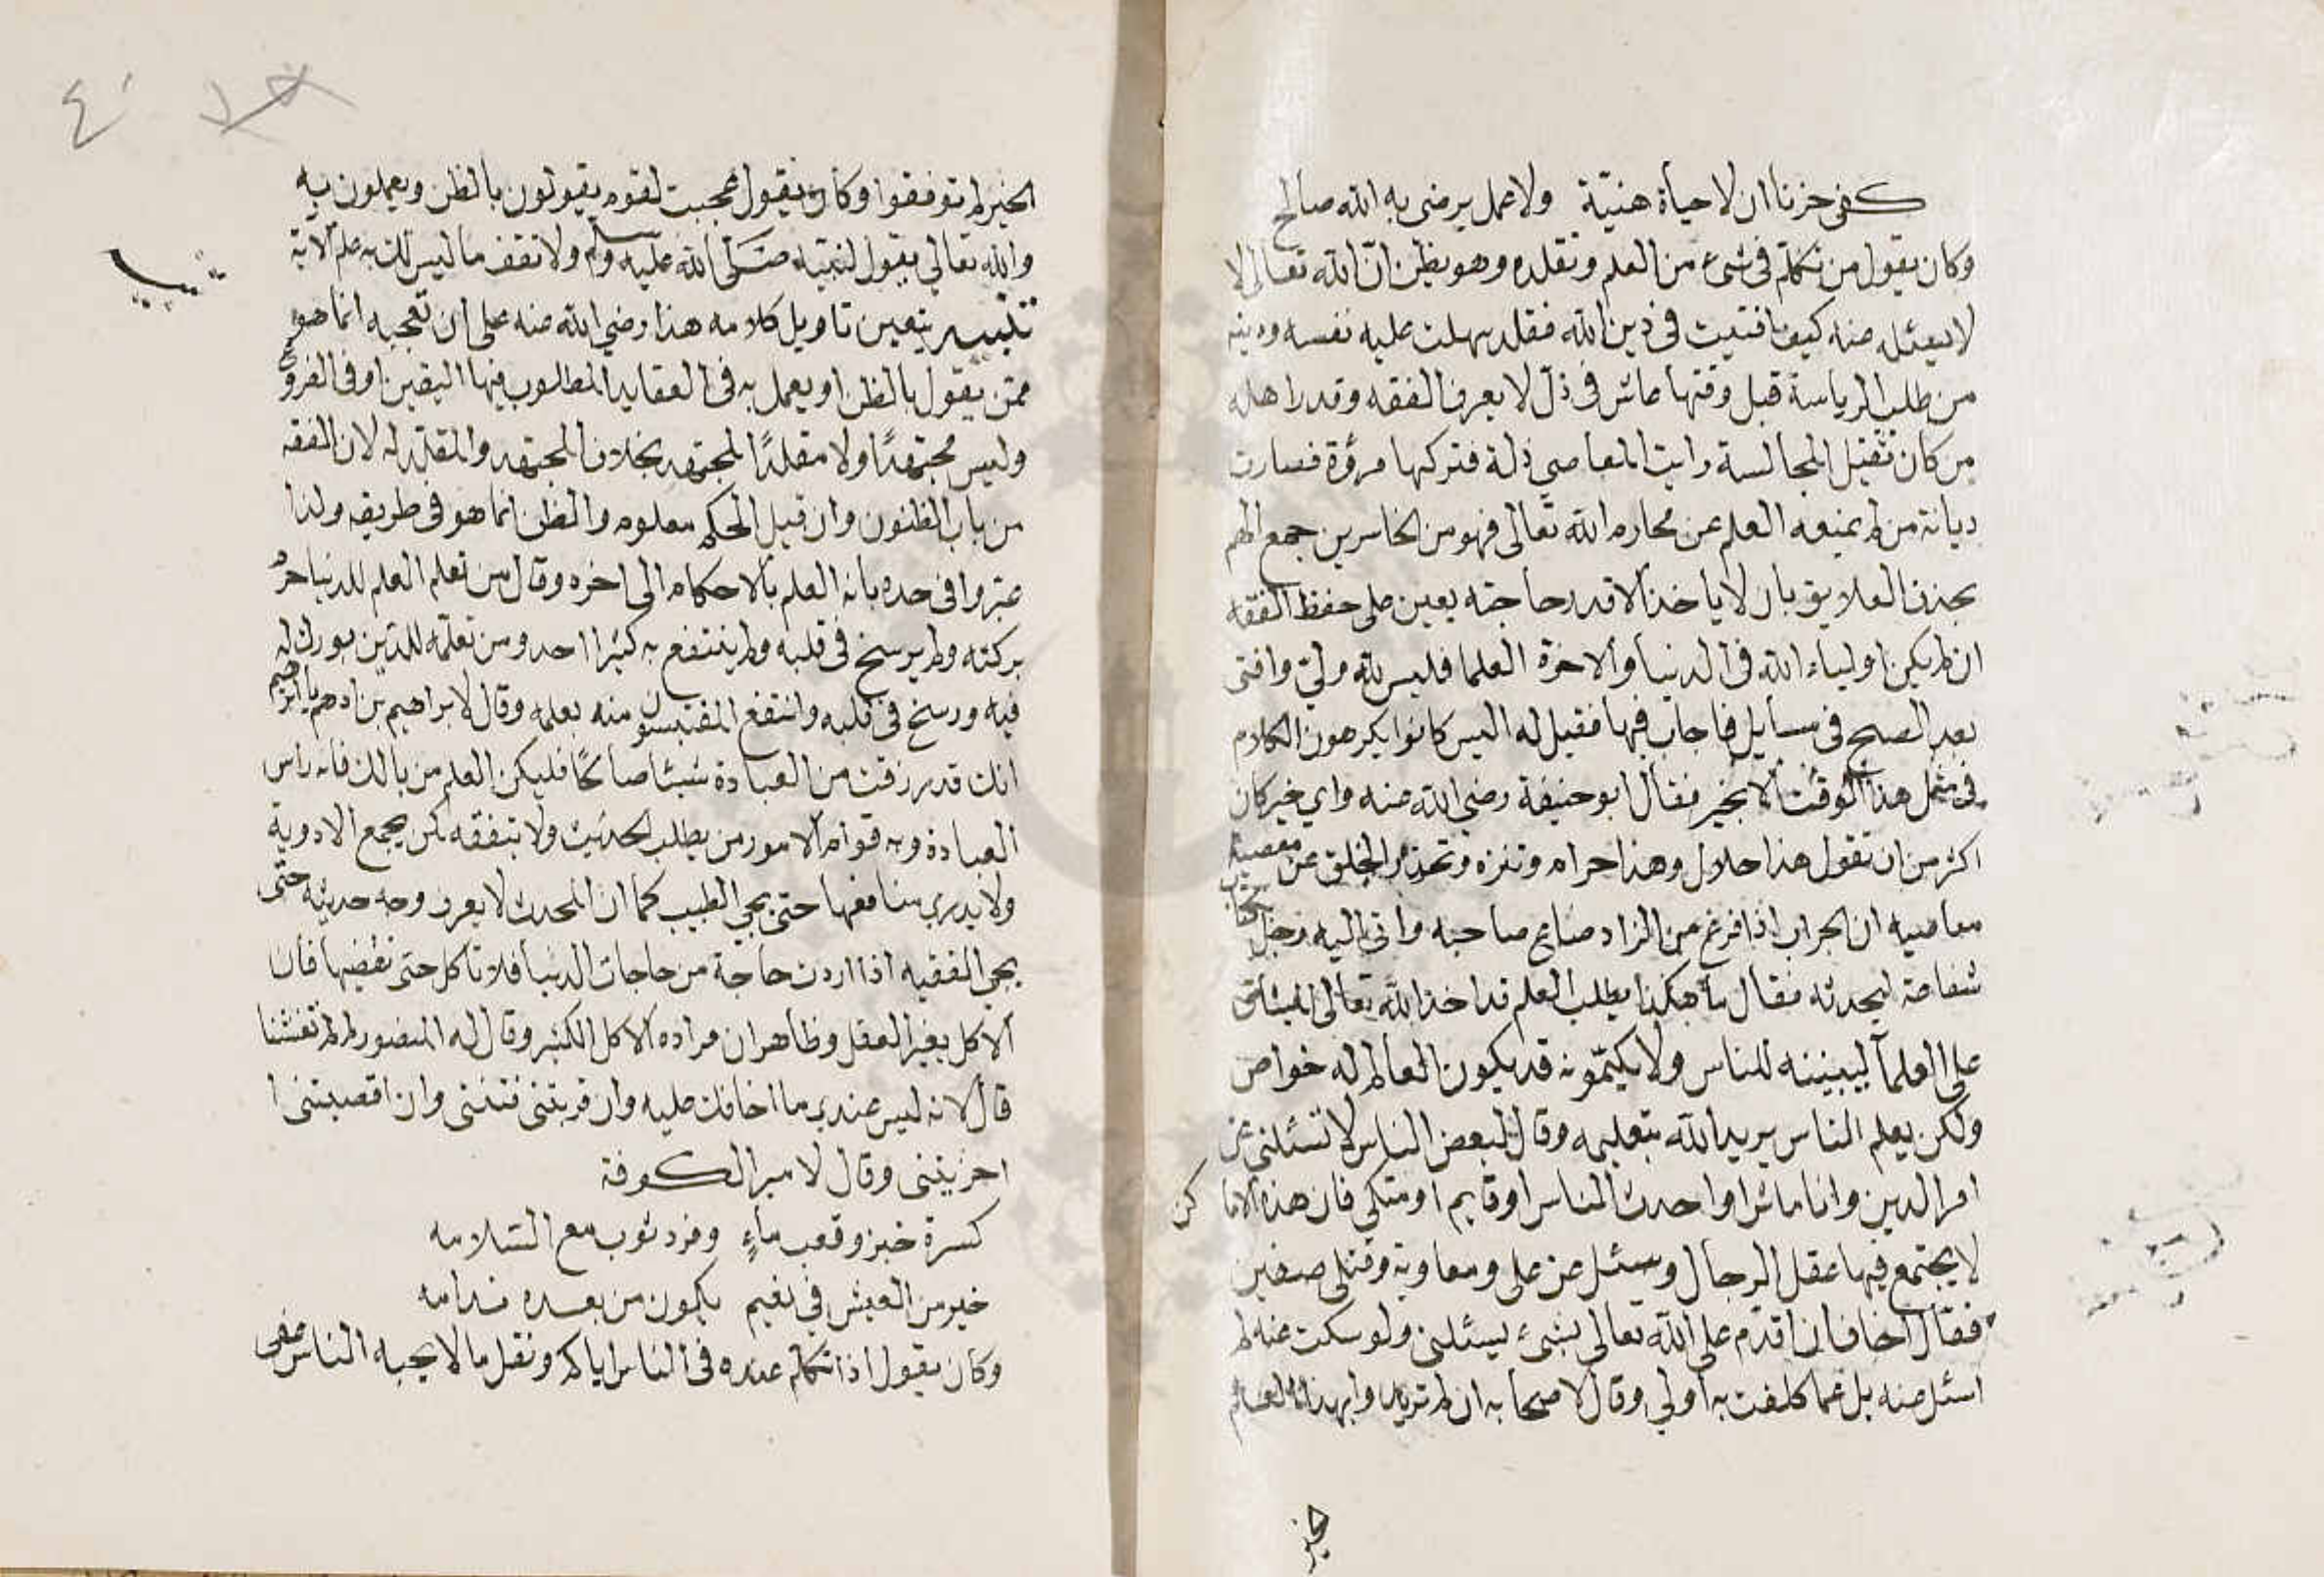 كفى حزنا ان لا حياة هنيّة ولا عمل يرضى به الله صالح
وكان يقول من تكلم فى شئ من العلم وتقلده وهو يظن انّ الله تعالى لا
لا يسئله عنه كيف افتيت فى دين الله فقد سهلت عليه نفسه ودينه
من طلب الرياسة قبل وقتها عاش فى ذل لا يعرف الفقه وقدر اهله
من كان ثقيل المجالسة رايت المعاصي ذلة فتركها مروّة فصارت
ديانة من لم يمنعه العلم عن محارم الله تعالى فهو من الخاسرين جمع الهم
بحذف العلايق بان لا ياخذ الا قدر حاجته يعين على حفظ الفقه
ان لم يكن اولياء الله فى الدنيا والاخرة العلما فليس لله ولي وافتى
بعد الصبح فى مسايل فاجاب فيها فقيل له اليس كانوا يكرهون الكلام
فى مثل هذا الوقت الا بخير فقال ابو حنيفة رضي الله عنه واي خير كان
اكثر من ان تقول هذا حلال وهذا حرام وتنزه وتحذر الخلق عن معصية
معاصيه ان الجراب اذا فرغ من الزاد ضاع صاحبه واتى اليه رجل بكتاب
شفاعة ليحدثه فقال ما هكذا يطلب العلم قد اخذ الله تعالى الميثاق
على العلمآ ليبيننه للناس ولا يكتمونه قد يكون العالم له خواص
ولكن يعلم الناس يريد الله بتعليمه وقال لبعض الناس لا تسئلني عن
امر الدين وانا ماش او احدث الناس او قايم او متكي فان هذه الاما كن
لا يجتمع فيها عقل الرجال وسئل عن علي ومعاوية وقتلى صفين
فقال اخاف ان اقدم على الله تعالى بشئ يسئلنى ولو سكت عنه لم
اسئل عنه بل عما كلفت به اولي وقال لاصحابه ان لم تريدوا بهذا العلم
خير
الخير لم توفقوا وكان يقول عجبت لقوم يقولون بالظن ويعملون به
والله تعالي يقول لنبيه صلى الله عليه وسلم ولا تقف ما ليس لك به علم الاية
تنبيه
تنبيه يتعين تاويل كلامه هذا رضي الله عنه على ان تعجبه انما هو
ممن يقول بالظن او يعمل به فى العقايد المطلوب فيها اليقين او فى الفروع
وليس مجتهدًا ولا مقلدًا لمجتهد بخلاف المجتهد والمقلد له لان الفقه
من باب الظنون وان قيل الحكم معلوم والظن انما هو فى طريقه ولذا
عبروا فى حده بانه العلم بالاحكام الى اخره وقال من تعلم العلم للدنيا حرم
بركته ولم يرسخ فى قلبه ولم ينتفع به كثيرا احد ومن تعلمه للدين بورك له
فيه ورسخ فى قلبه وانتفع المقتبسون منه بعلمه وقال لابراهيم بن ادهم يا ابراهيم
انك قد رزقت من العبادة شيئا صالحًا فليكن العلم من بالك فانه راس
العبادة وبه قوام الامور من يطلب الحديث ولا يتفقه كمن يجمع الادوية
ولا يدري منافعها حتى يجي الطبيب كما ان المحدث لا يعرف وجه حديثه حتّى
يجي الفقيه اذا اردت حاجة من حاجات الدنيا فلا تاكل حتى تقضيها فان
الاكل يغير العقل وظاهر ان مراده الاكل الكثير وقال له المنصور لم لم تغشنا
قال لانه ليس عندي ما اخافك عليه وان قربتنى فتنتنى وان اقصيتنى ا
احزيتنى وقال لامير الكوفة
كسرة خبز وقعب ماءٍ وفرد ثوب مع السّلامه
خير من العيش في نعيم يكون من بعده ندامه
وكان يقول اذا تكلم عنده فى الناس اياكم ونقل ما لا يحبه الناس عفى